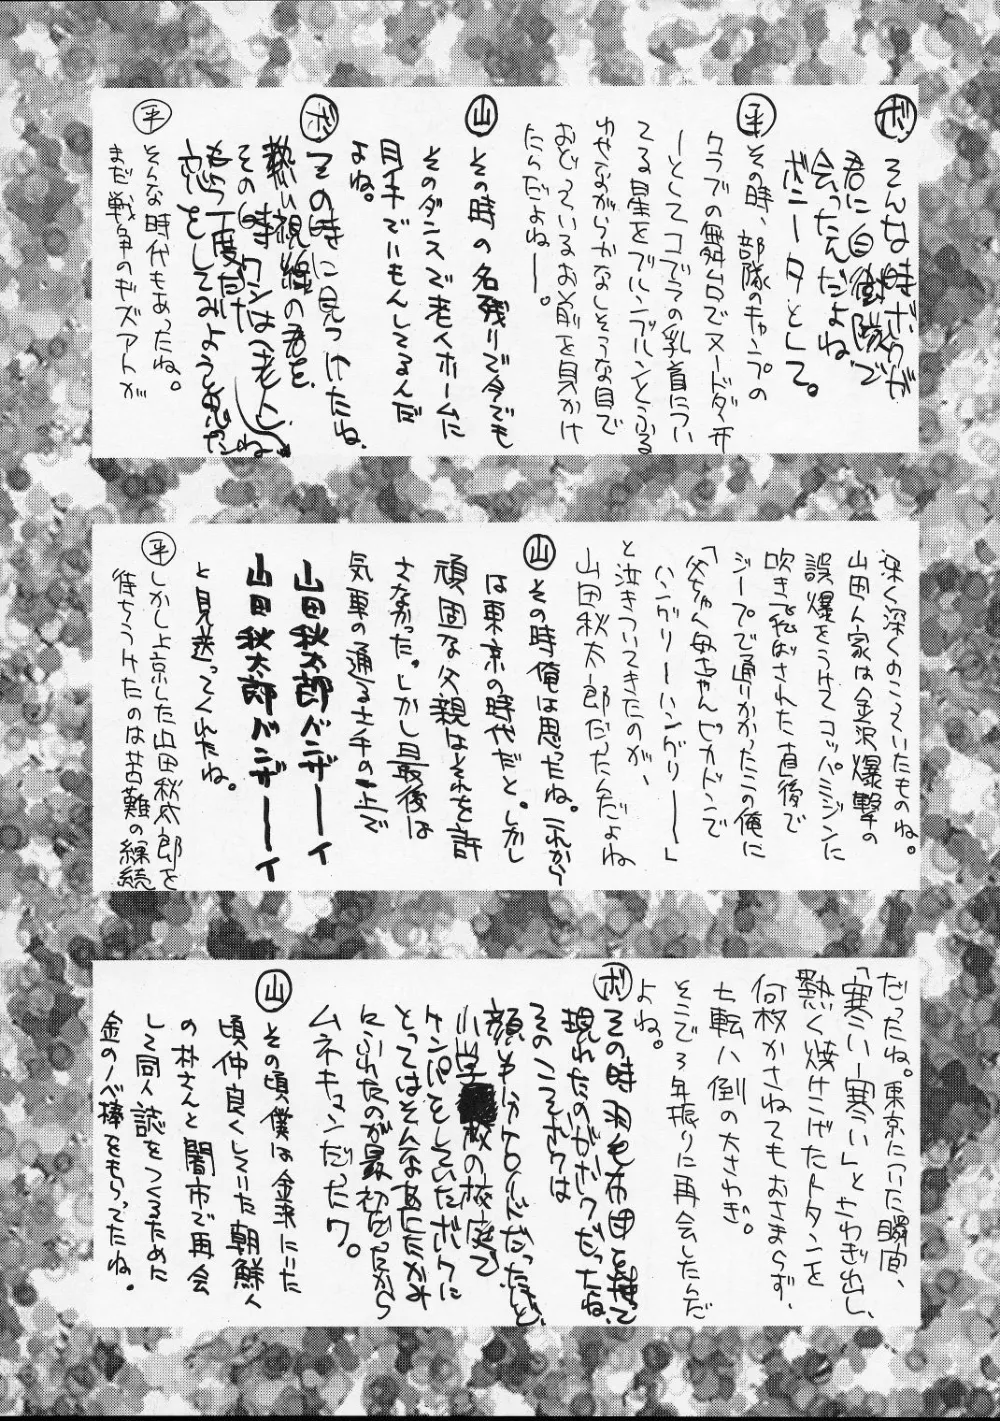 ボ そんな時ボクが
君に白樹隊で
会ったんだよね
ボニータとして。
平 その時、部隊のキャンプの
クラブの舞台でヌードダンサ
ーとしてコブラの乳首につい
てる星をブルンブルンとふる
わせながらかなしそうな目で
おどっているお前を見かけ
たらだよねー。
山 その時の名残りで今でも
そのダンスで老人ホームに
目手でいもんしてるんだ
よね。
ボ その時に見つけたね、
熱い視線の君を、
その時ワシは老人ね
もう一度だけ
恋をしてみようと思った
平 そんな時代もあったね。
まだ戦争のキズアトが
深く深くのこっていたものね。
山田人家は金沢爆撃の
誤爆をうけてコッパミジンに
吹き飛ばされた直後で
ジープで通りかかったこの俺に
「父ちゃん母ちゃんピカドンで
ハングリーハングリー——」
と泣きついてきたのが、
山田秋太郎だったんだよね
山 その時俺は思ったね。これから
は東京の時代だと。しかし
頑固な父親はそれを許
さなかった。しかし最後は
気車の通る土手の上で
山田秋太郎バンザーーイ
山田秋太郎バンザーーイ
と見送ってくれたね。
平 しかし上京した山田秋太郎を
待ちうけたのは苦難の継続
だったね。東京についた瞬間、
「寒いー寒いー」とさわぎ出し、
熱く焼けこげたトタンを
何枚かさねてもおさまらず、
七転八倒の大さわぎ。
そこで3年振りに再会したんだ
よね。
ボ その時羽毛布団を持って
現れたのがボクだったね
そのころボクは
顔も小カロリーだったけど
小学校の校庭で
ケンパをしていたボクに
とってはそんなあたたかみ
にふれたのが最初だったから
ムネキュンだったワ。
山 その頃僕は金策にいた
頃仲良くしていた朝鮮人
の朴さんと闇市で再会
して同人誌をつくるために
金のノベ棒をもらってたね。